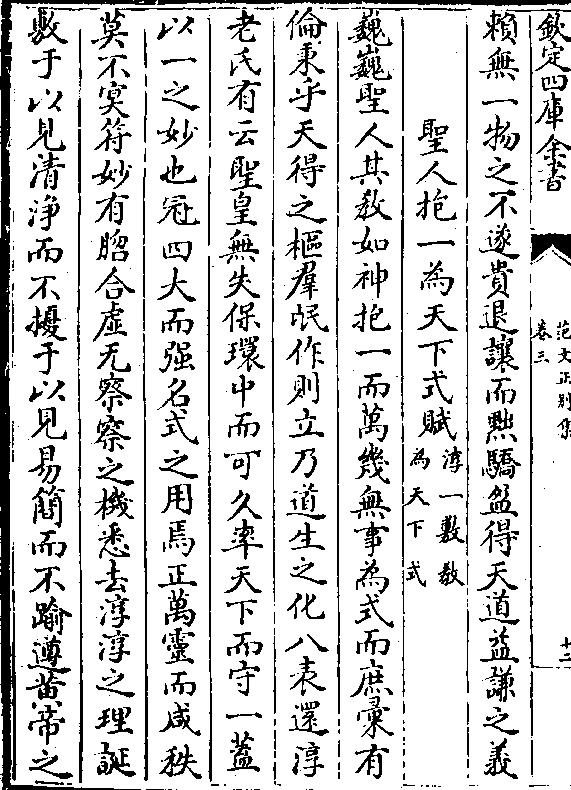 欽定四庫全書
范文正別集
卷三
十二
賴無一物之不遂貴退讓而黜驕盈得天道益謙之義
聖人抱一為天下式賦
淳一敷教
為天下式
巍巍聖人其教如神抱一而萬幾無事為式而庶彙有
倫秉乎天得之樞羣氓作則立乃道生之化八表還淳
老氏有云聖皇無失保環中而可久率天下而守一蓋
以一之妙也冠四大而强名式之用焉正萬靈而咸秩
莫不冥符妙有脗合虛无察察之機悉去淳淳之理誕
敷于以見清浄而不擾于以見易簡而不踰遵黃帝之